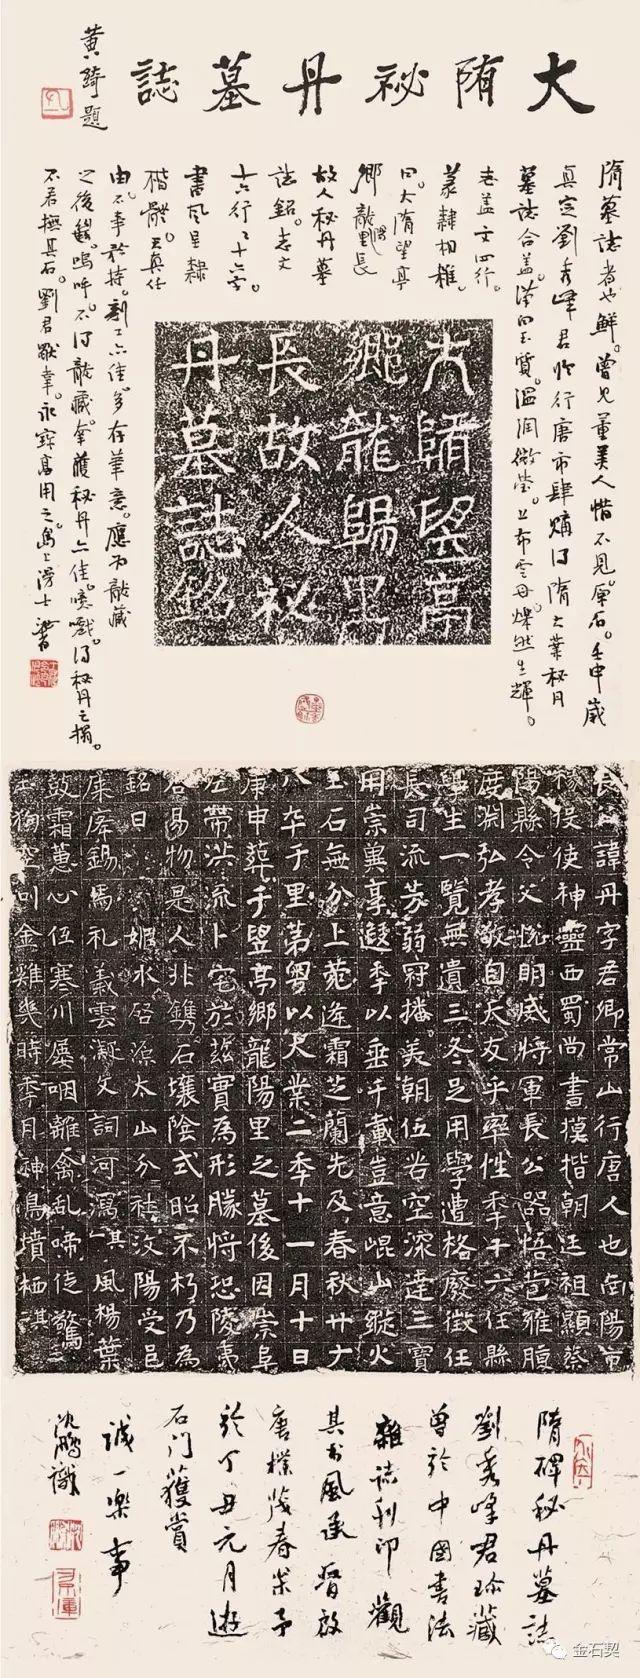 大隋祕丹墓誌
黄绮題
隋墓誌者也鮮。曾見董美人惜不見原石。壬申歲
真定劉秀峰君於行唐市肆購得隋大業秘丹
墓誌合蓋。漢白玉質。温潤微瑩。上布雲丹燦然生輝。
志蓋文四行。
篆隸相雜。
曰。大隋望亭
鄉龍陽里長
故人秘丹墓
誌銘。志文
十六行行十六字
書風呈隸
楷體。天真任
由。不事矜持。刻工亦佳。多存筆意。應為敲藏
之後。嗚呼。不得敲藏。幸獲秘丹亦佳。噫嚱。得秘丹之搨。
不若撫其石。劉君
大隋望亭
鄉龍陽里
長故人祕
丹墓誌銘
長諱丹字君卿常山行唐人也
使神靈西蜀尚書摸楷朝廷祖顯蔡
陽縣令父悦明威將軍長公器悟苞雅腹
度淵弘孝敬自天友乎率性季十六任縣
學生一覽無遺三冬足用學遭格廢徵任
長司流芳弱冠播美朝伍尚空深達三寶
用崇冀享遐季以垂千載豈意崐山縱火
玉石無分上菀逢霜芝蘭先及春秋廿十
八卒于里第粵以大業二季十一月十日
庚申葬于望亭鄉龍陽里之墓後因崇阜
左帶洪流卜宅於茲實為形勝將恐陵夷
谷易物是人非鐫石壤陰式昭不朽乃為
銘曰 媯水啓源太山分社汶陽受邑
康侯錫馬礼義雲凝文詞河瀉其風楊葉
鼓霜蕙心伍寒川屡咽離禽乱啼徒驚
空叫金雞幾時季月神鳥墳栖其
隋碑秘丹墓誌
劉秀峰君珍藏
曾於中國書法
雜誌刊印觀
其書風承晉啟
唐樸茂春容予
於丁丑元月遊
石门獲賞
誠一樂事
沈鵬識
金石契